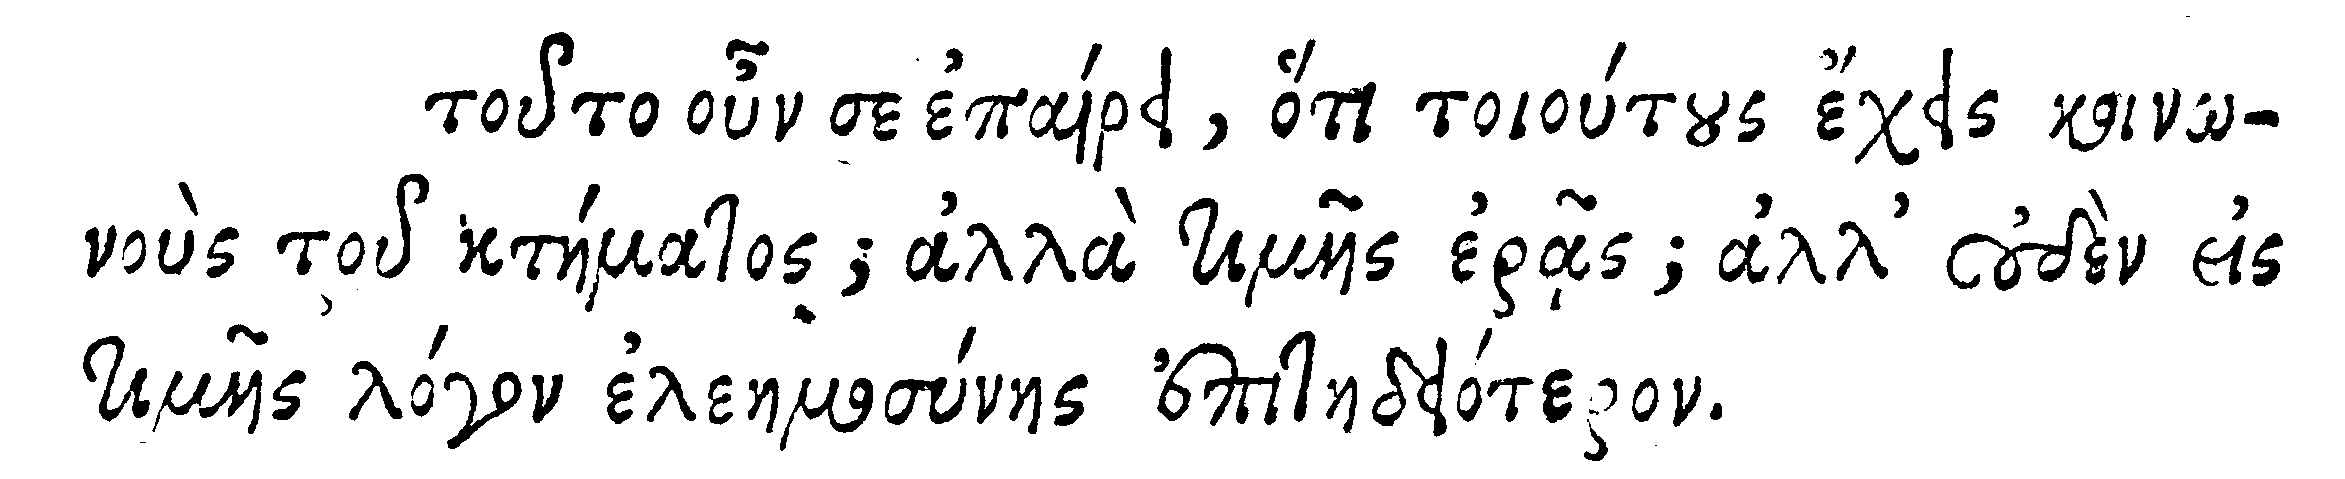 τοῦτο οὖν σε ἐπαίρει, ὅτι τοιούτους ἔχεις κοινω-
νοὺς τοῦ κτήματος; ἀλλὰ τιμῆς ἐρᾷς; ἀλλ' οὐδὲν εἰς
τιμῆς λόγον ἐλεημοσύνης ἐπιτηδειότερον.